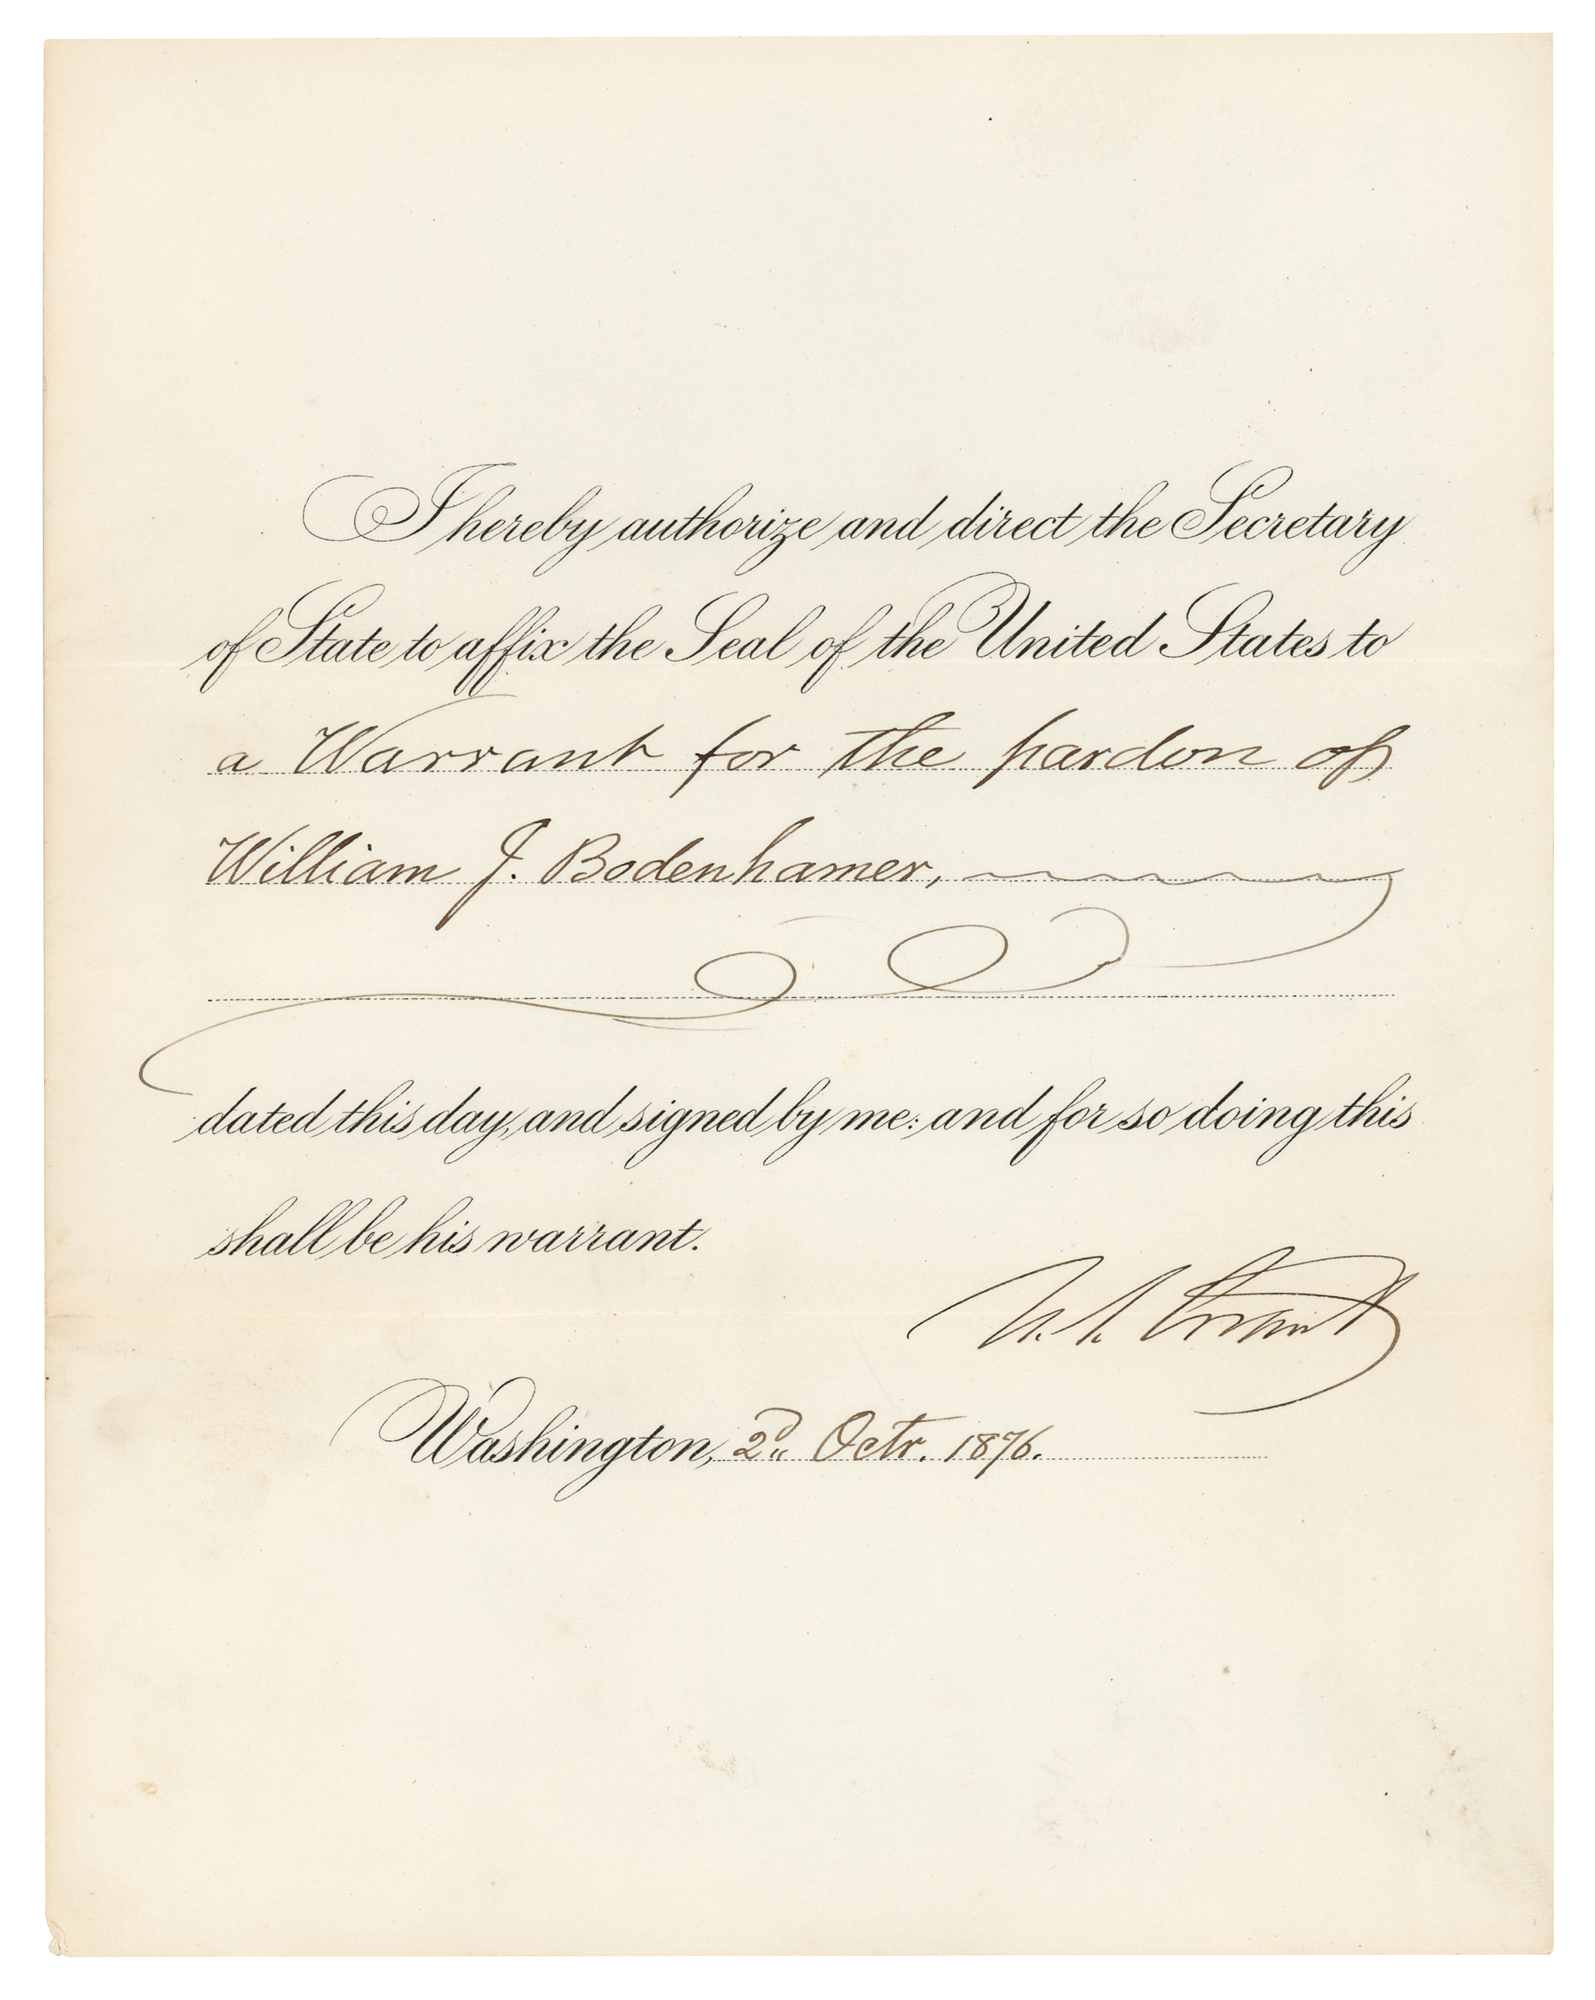 I hereby authorize and direct the Secretary
of State to affix the Seal of the United States to
a Warrant for the pardon of
William J. Bodenhamer,
dated this day, and signed by me: and for so doing this
shall be his warrant.
U.S. Grant
Washington, 2d Octr. 1876.